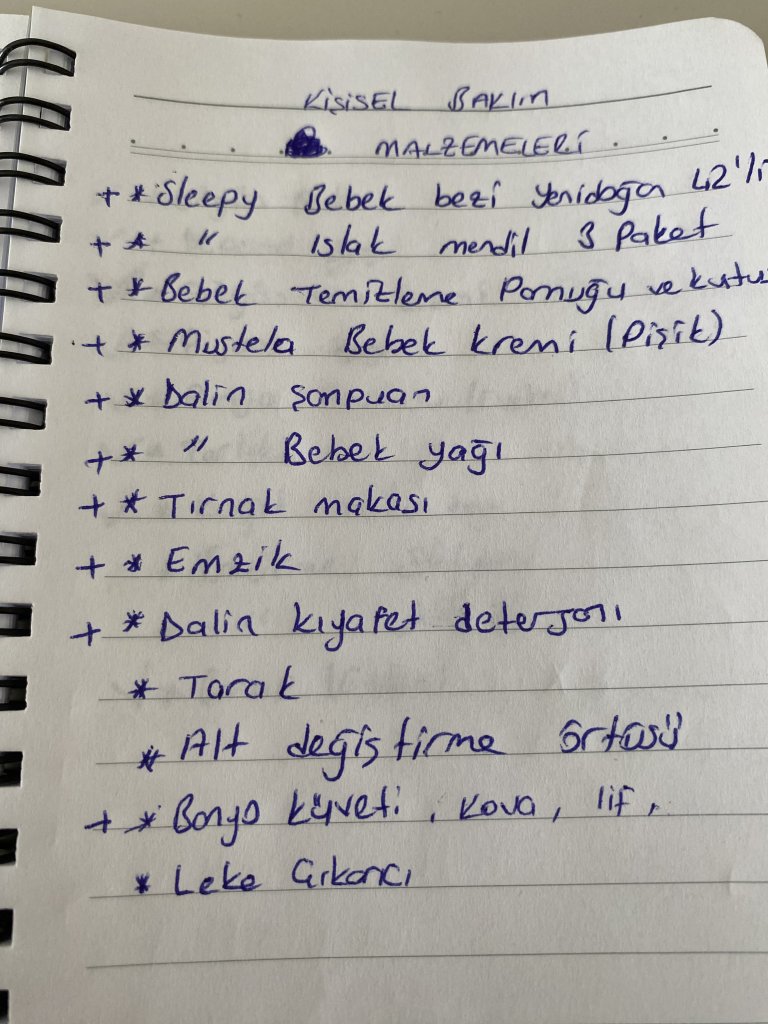 KİŞİSEL BAKIM
MALZEMELERİ
+ * Sleepy Bebek bezi yenidoğan 42'li
+ * " Islak mendil 3 Paket
+ * Bebek Temizleme Pamuğu ve kutus
+ * Mustela Bebek kremi (Pişik)
+ * Dalin şampuan
+ * " Bebek yağı
+ * Tırnak makası
+ * Emzik
+ * Dalin kıyafet deterjanı
* Tarak
* Alt değiştirme örtüsü
+ * Banyo küveti, kova, lif,
* Leke Çıkarıcı